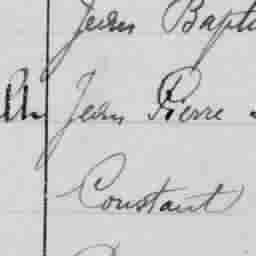 Jean Bapti
Jean Pierre
Constant